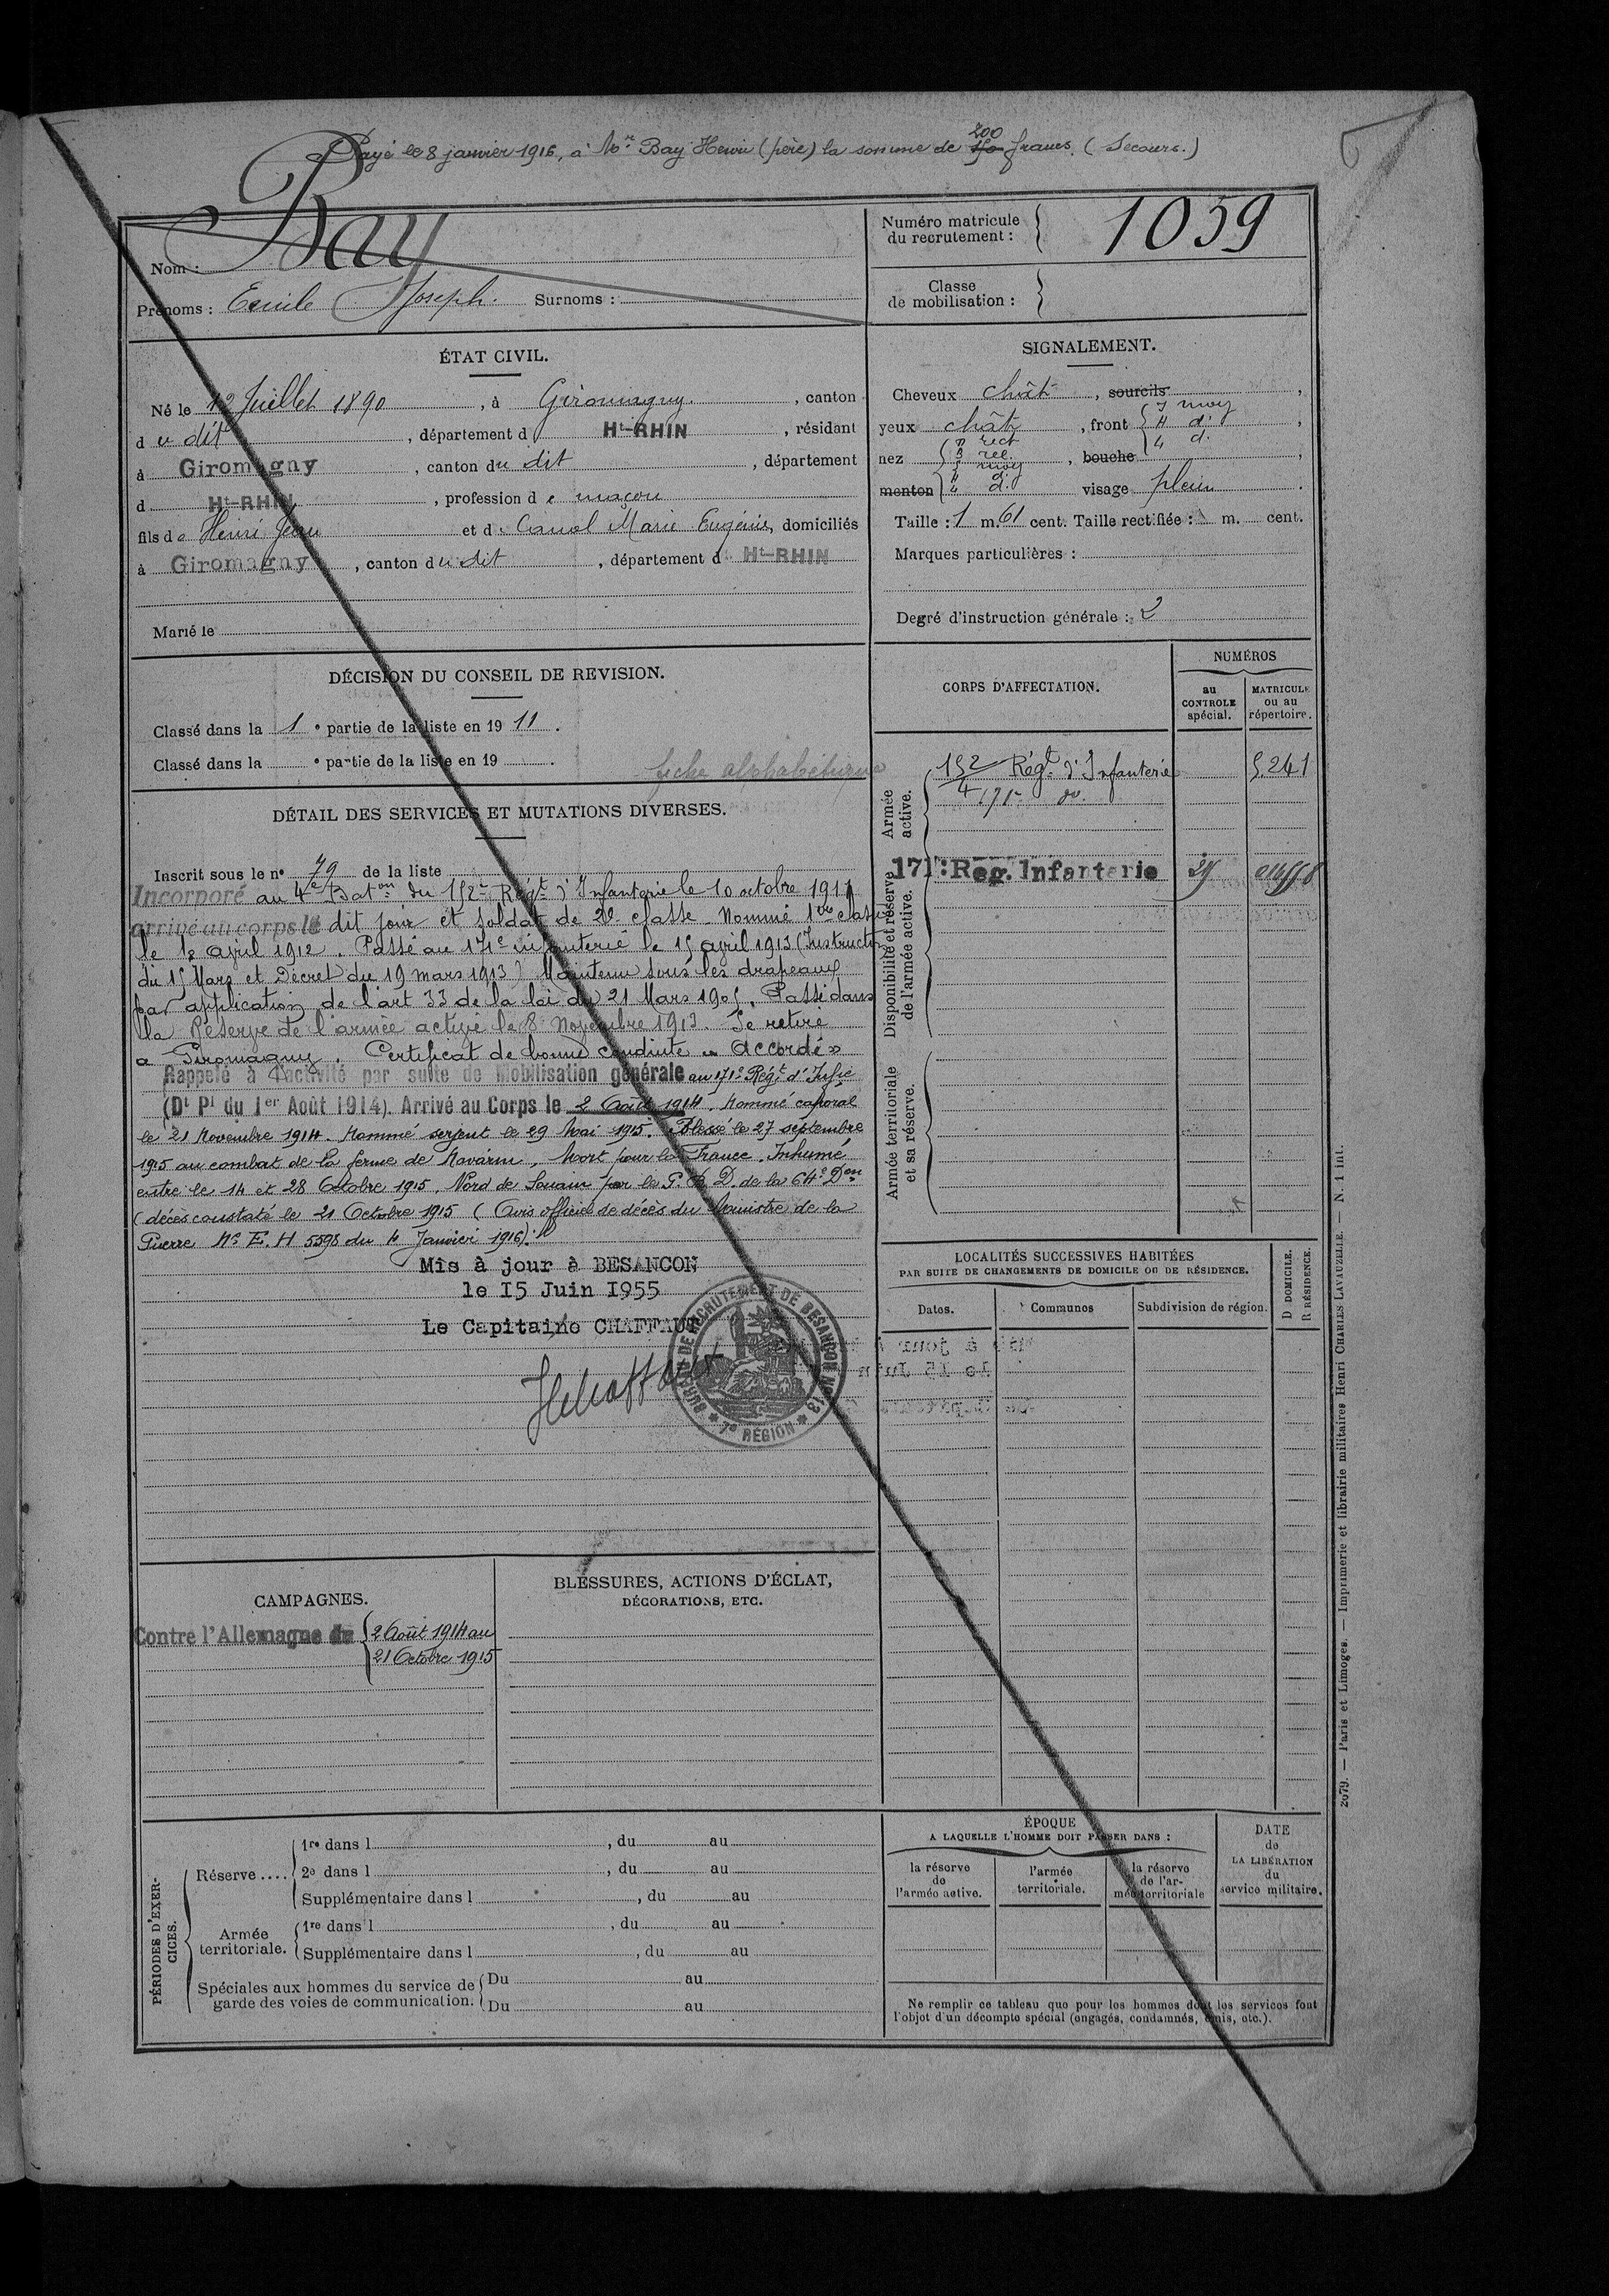 Payé le 8 janvier 1916, à Mr Bay Henri (père) la somme de 200 francs. (Secours.)
Nom : Bay
Prénoms : Emile Joseph. Surnoms :
Numéro matricule du recrutement : 1059
Classe de mobilisation :
ÉTAT CIVIL.
Né le 12 Juillet 1890, à Giromagny, canton
du dit, département d Ht-RHIN, résidant
à Giromagny, canton du dit, département
d Ht-RHIN, profession de maçon
fils de Henri Jean et de Canal Marie Eugénie, domiciliés
à Giromagny, canton du dit, département d Ht-RHIN
Marié le
SIGNALEMENT.
Cheveux chât, sourcils
yeux chât, front moy
nez rect, bouche
menton visage plein.
Taille : 1 m. 61 cent. Taille rectifiée : m. cent.
Marques particulières :
Degré d'instruction générale : 2
DÉCISION DU CONSEIL DE REVISION.
Classé dans la 1e partie de la liste en 1911.
Classé dans la e partie de la liste en 19 .
fiche alphabétique
CORPS D'AFFECTATION.
NUMÉROS
au CONTROLE spécial.
MATRICULE ou au répertoire.
Armée active.
152 Régt d'Infanterie 5.241
171e do.
Disponibilité et réserve de l'armée active.
171e Rég. Infanterie
Armée territoriale et sa réserve.
DÉTAIL DES SERVICES ET MUTATIONS DIVERSES.
Inscrit sous le n° 79 de la liste
Incorporé au 4e Baton du 152e Régt d'Infanterie le 10 octobre 1911
arrivé au corps le dit jour et soldat de 2e classe. Nommé 1re classe
le 12 avril 1912. Passé au 171e infanterie le 15 avril 1913 (Instruction
du 15 Mars et Décret du 19 mars 1913) Maintenu sous les drapeaux
par application de l'art 33 de la loi du 21 Mars 1905. Passé dans
la Réserve de l'armée active le 8 Novembre 1913. Se retire
à Giromagny. Certificat de bonne conduite "Accordé"
Rappelé à l'activité par suite de Mobilisation générale au 171e Régt d'Infie
(Dt Pl du 1er Août 1914). Arrivé au Corps le 2 Août 1914. Nommé caporal
le 21 Novembre 1914. Nommé sergent le 29 Mai 1915. Blessé le 27 septembre
1915 au combat de la ferme de Navarin. Mort pour la France. Inhumé
entre le 14 et 28 Octobre 1915. Nord de Souain par le G. B. D. de la 64e Don
(décès constaté le 21 Octobre 1915 (Avis officiel de décès du Ministre de la
Guerre No E. H 5598 du 4 Janvier 1916).
Mis à jour à BESANCON
le 15 Juin 1955
Le Capitaine CHAFFAUT
BUREAU DE RECRUTEMENT DE BESANCON N° 13
7e RÉGION
LOCALITÉS SUCCESSIVES HABITÉES
PAR SUITE DE CHANGEMENTS DE DOMICILE OU DE RÉSIDENCE.
Dates. Communes Subdivision de région. D DOMICILE. R RÉSIDENCE.
CAMPAGNES.
Contre l'Allemagne du 2 Août 1914 au
21 Octobre 1915
BLESSURES, ACTIONS D'ÉCLAT,
DÉCORATIONS, ETC.
PÉRIODES D'EXERCICES.
Réserve....
1re dans l , du au
2e dans l , du au
Supplémentaire dans l , du au
Armée territoriale.
1re dans l , du au
Supplémentaire dans l , du au
Spéciales aux hommes du service de garde des voies de communication.
Du au
Du au
ÉPOQUE
A LAQUELLE L'HOMME DOIT PASSER DANS :
la réserve de l'armée active.
l'armée territoriale.
la réserve de l'armée territoriale
DATE de LA LIBÉRATION du service militaire.
Ne remplir ce tableau que pour les hommes dont les services font
l'objet d'un décompte spécial (engagés, condamnés, omis, etc.).
2079. — Paris et Limoges. — Imprimerie et librairie militaires Henri CHARLES LAVAUZELLE. — N. 1 int.